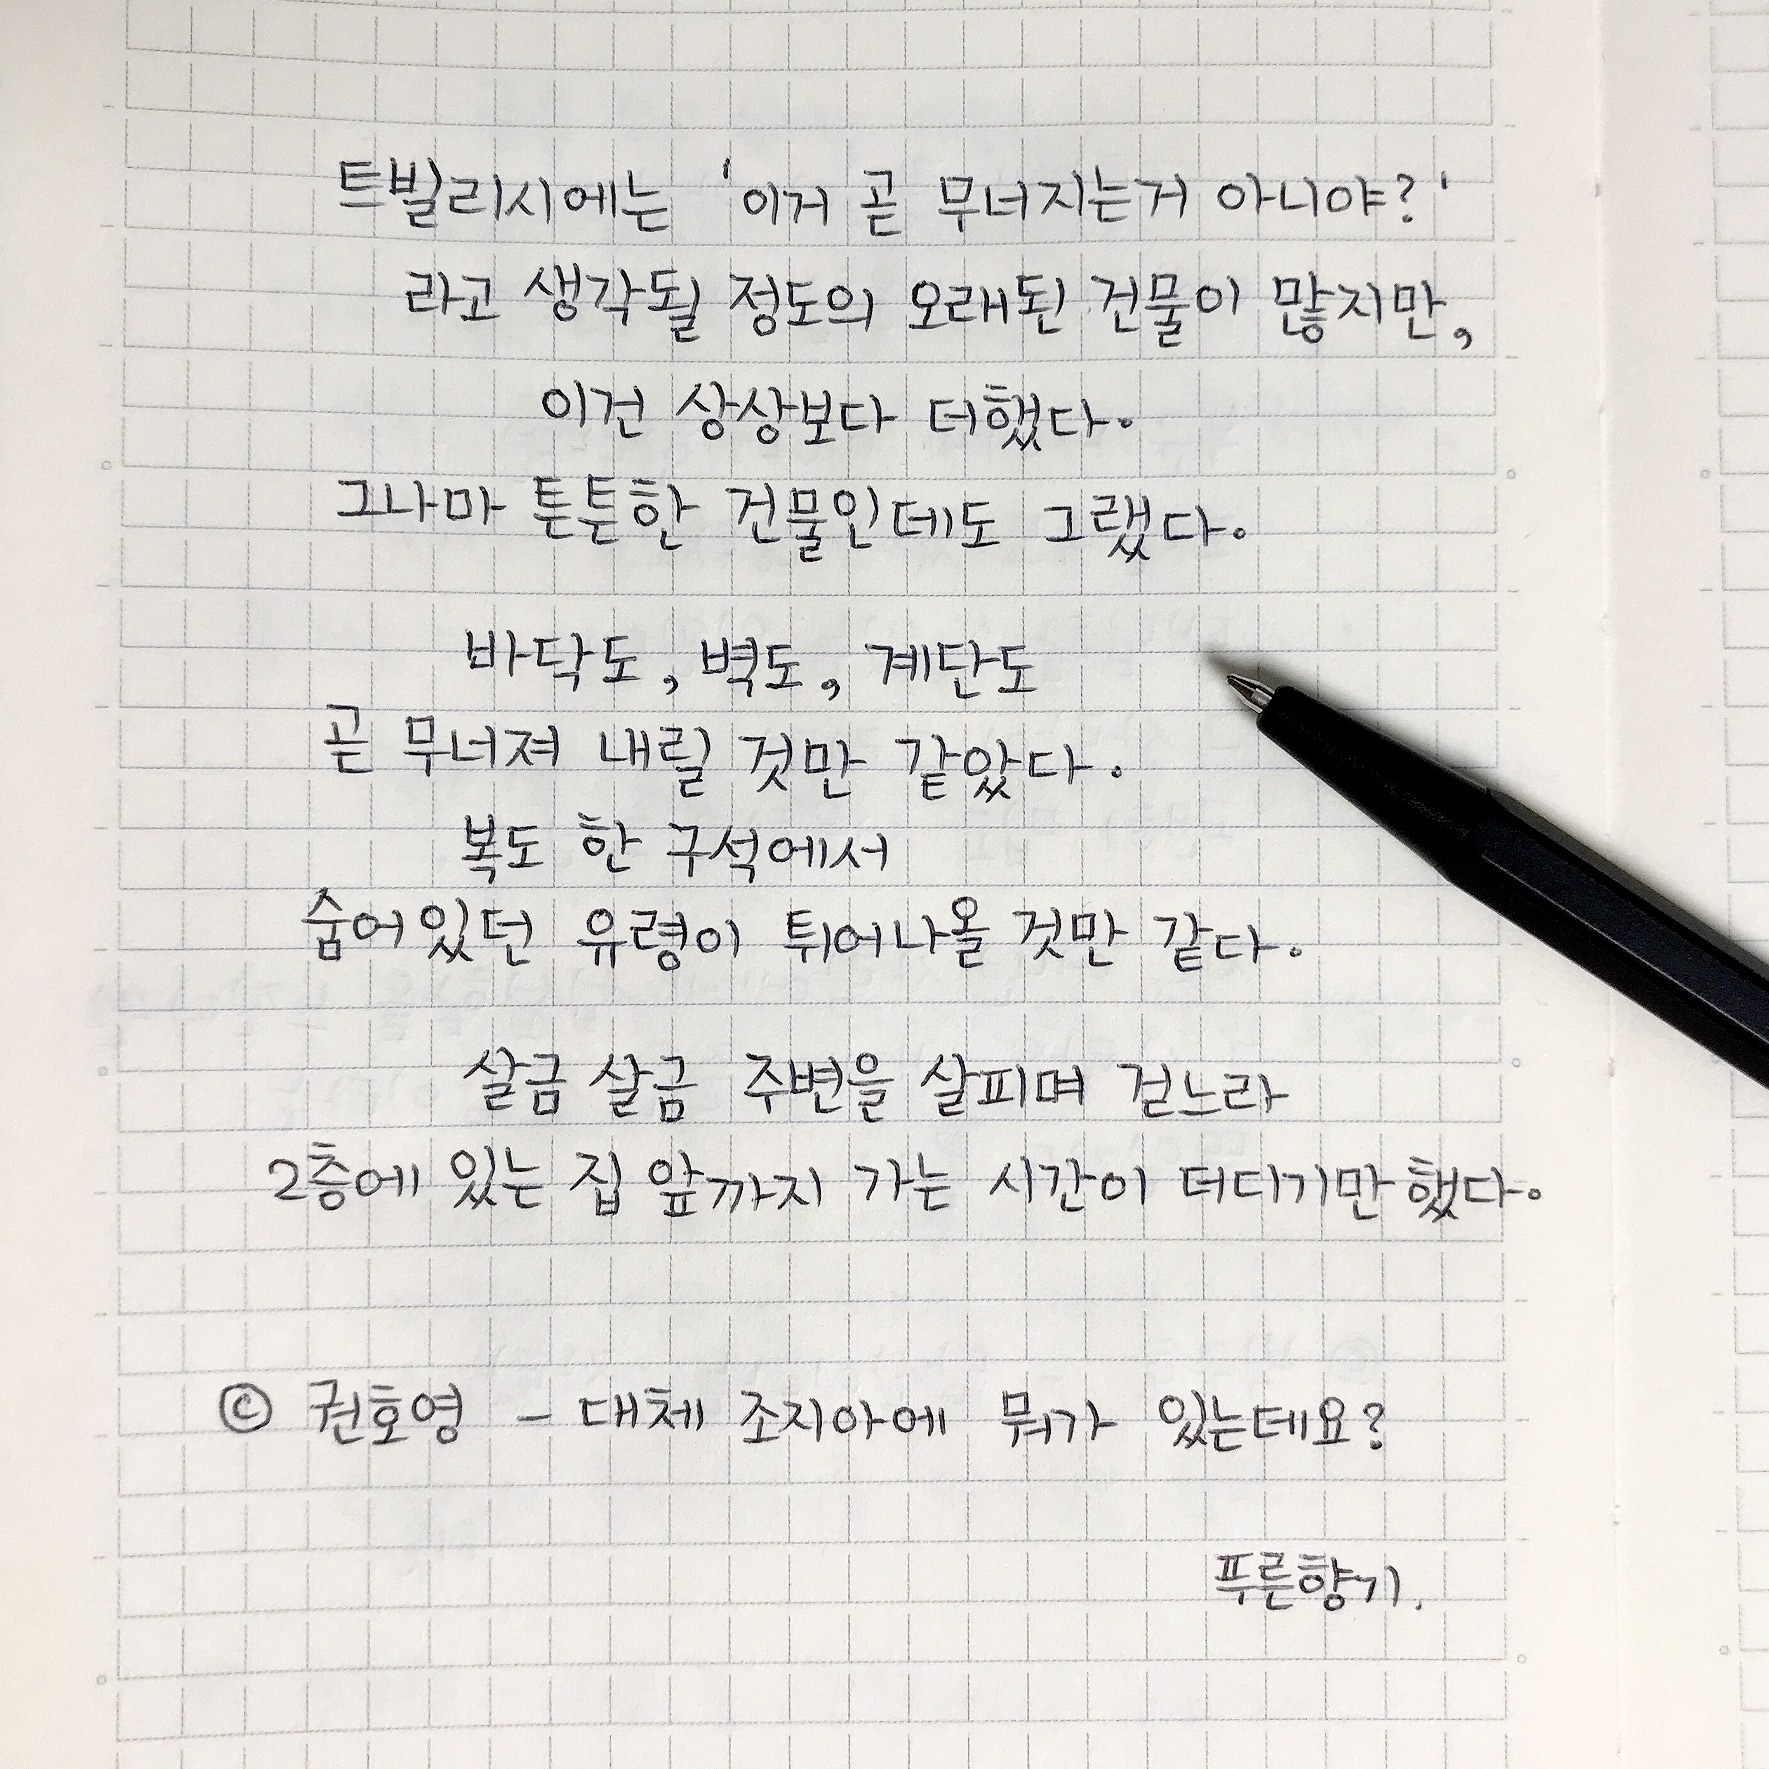 트빌리시에는 '이거 곧 무너지는거 아니야?'
라고 생각될 정도의 오래된 건물이 많지만,
이건 상상보다 더했다.
그나마 튼튼한 건물인데도 그랬다.
바닥도, 벽도, 계단도
곧 무너져 내릴 것만 같았다.
복도 한 구석에서
숨어있던 유령이 튀어나올 것만 같다.
살금 살금 주변을 살피며 걷느라
2층에 있는 집 앞까지 가는 시간이 더디기만 했다.
© 권호영 - 대체 조지아에 뭐가 있는데요?
푸른향기.